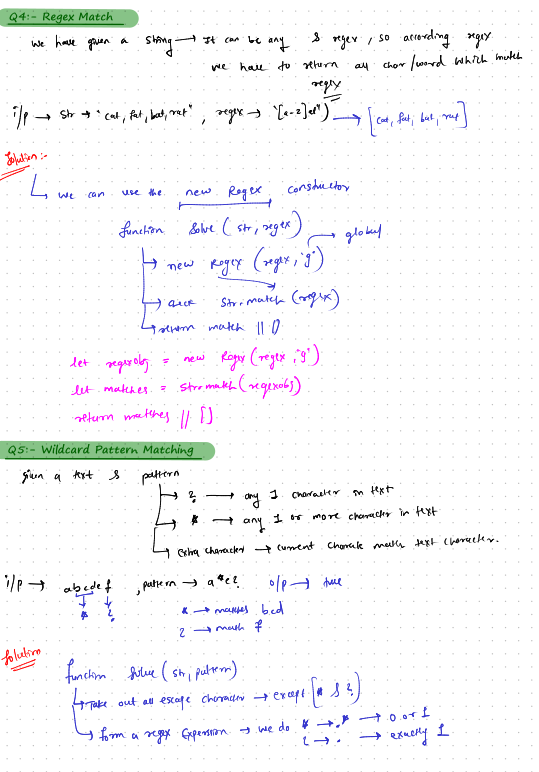 Q4:- Regex Match
we have given a string → It can be any & regex, so according regex
we have to return all char/word which match
regex
i/p → str → "cat, fat, bat, rat" , regex → "[a-z]at") → [cat, fat, bat, rat]
Solution:-
we can use the new Regex constructor
function solve (str, regex)
→ global
→ new Regex (regex, "g")
→ str.match (regex)
→ return match || []
let regexobj = new Regex (regex, "g")
let matches = str.match (regexobj)
return matches || []
Q5:- Wildcard Pattern Matching
given a text & pattern
→ ? → any 1 character in text
→ * → any 1 or more character in text
→ extra character → current character match text character.
i/p → abcdef , pattern → a*e? o/p → true
* ?
* → matches bcd
? → math f
Solution
function solve (str, pattern)
→ Take out all escape character → except [* & ?]
→ form a regex Expression → we do * → .* → 0 or 1
? → . → exactly 1